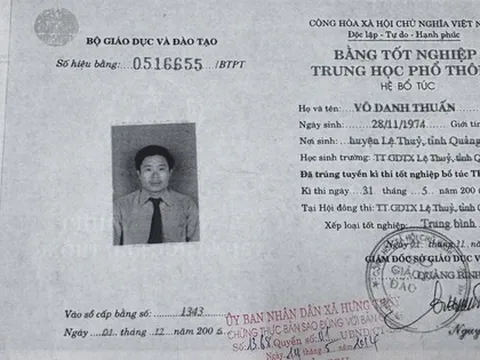 BỘ GIÁO DỤC VÀ ĐÀO TẠO
Số hiệu bằng: 0516655 /BTPT
CỘNG HÒA XÃ HỘI CHỦ NGHĨA VIỆT
Độc lập - Tự do - Hạnh phúc
BẰNG TỐT NGHIỆP
TRUNG HỌC PHỔ THÔ
HỆ BỔ TÚC
Họ và tên: VÕ DANH THUẤN
Ngày sinh: 28/11/1974 Giới tí
Nơi sinh: huyện Lệ Thuỷ, tỉnh Quảng
Học sinh trường: TT GDTX Lệ Thuỷ, tỉnh
Đã trúng tuyển kì thi tốt nghiệp bổ túc T
Kì thi ngày 31 5 200
Tại Hội đồng thi: TT-GDTX Lệ Thuỷ, tỉnh
Xếp loại tốt nghiệp: Trung bình
GIÁM ĐỐC SỞ GIÁO DỤC VÀ
QUẢNG BÌNH
Vào sổ cấp bằng số: 1343
Ngày 01 12 200
ỦY BAN NHÂN DÂN XÃ HƯNG
CHỨNG THỰC BẢN SAO ĐÚNG VỚI BẢN
Ngày 14 tháng 5 năm 2014